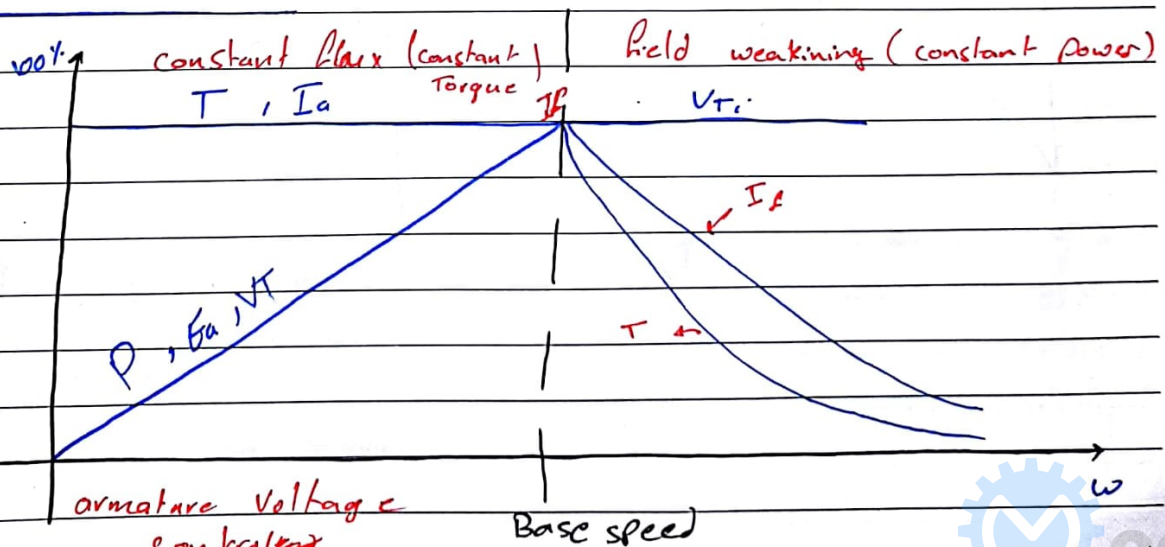 100%
constant flux (constant)
Torque
field weakining (constant power)
T , Ia
If
VT.
If
P , Ea , VT
T
ω
armature Voltage
Base speed